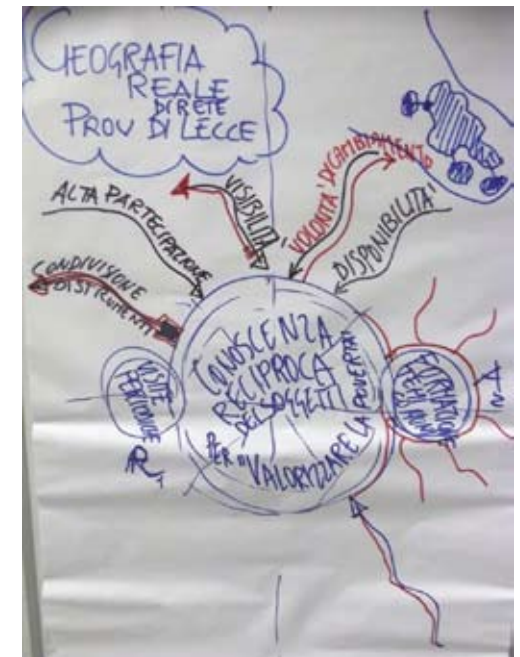 GEOGRAFIA
REALE
DI RETE
PROV DI LECCE
ALTA PARTECIPAZIONE
VISIBILITA'
VOLONTA' DI CAMBIAMENTO
DISPONIBILITA'
CONDIVISIONE
DI STRUMENTI
CONOSCENZA
RECIPROCA
DEI SOGGETTI
PER VALORIZZARE LA POVERTA'
VISITE
PERIODICHE
FORMAZIONE